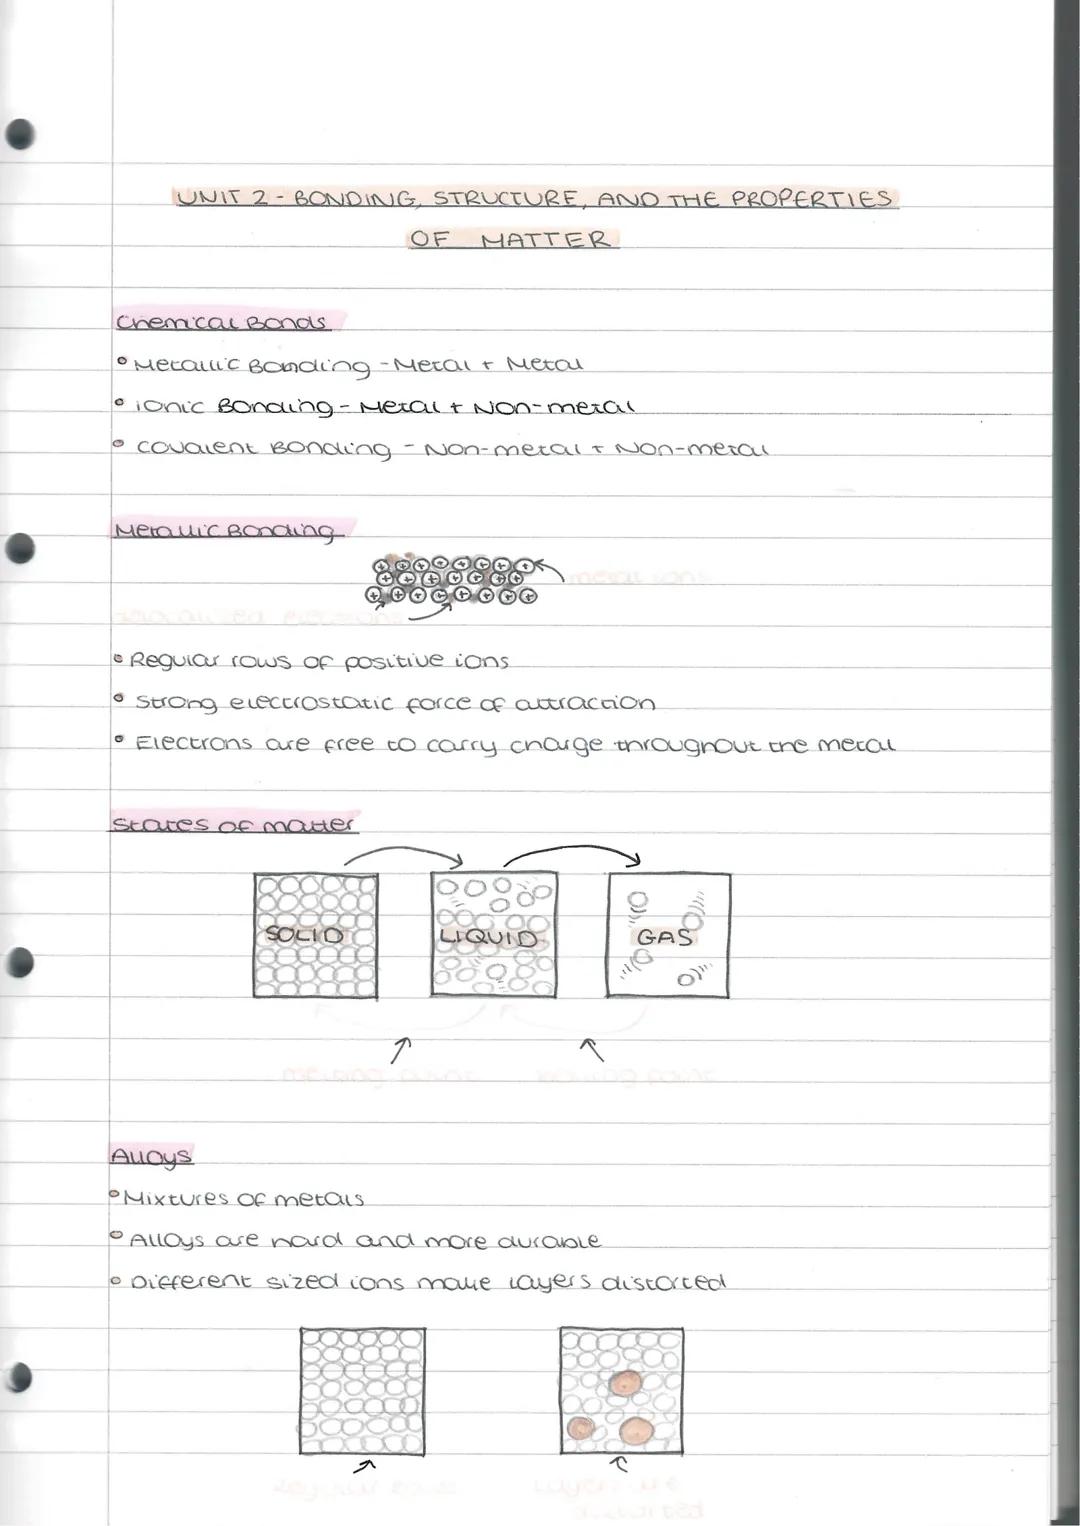 UNIT 2 - BONDING, STRUCTURE, AND THE PROPERTIES
OF MATTER
Chemical Bonds
• Metallic Bonding - Metal + Metal
• ionic Bonding - Metal + Non-metal
• Covalent Bonding - Non-metal + Non-metal
Metallic Bonding
metal ions
delocalised electrons
• Regular rows of positive ions
• Strong electrostatic force of attraction
• Electrons are free to carry charge throughout the metal
States of matter
SOLID LIQUID GAS
melting point boiling point
Alloys
• Mixtures of metals
• Alloys are hard and more durable
• Different sized ions make layers distorted
Layers are
distorted